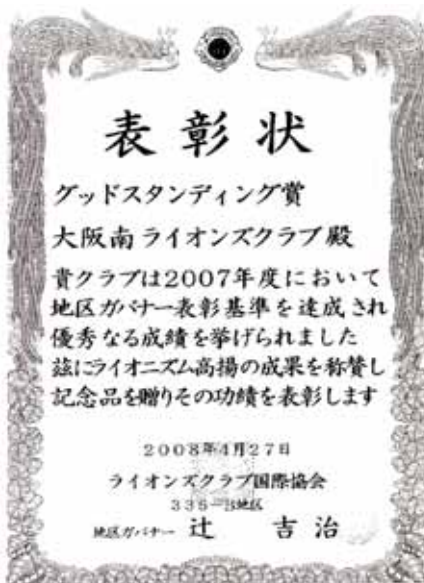 表彰状
グッドスタンディング賞
大阪南ライオンズクラブ殿
貴クラブは2007年度において
地区ガバナー表彰基準を達成され
優秀なる成績を挙げられました
茲にライオニズム高揚の成果を称賛し
記念品を贈りその功績を表彰します
2008年4月27日
ライオンズクラブ国際協会
335-B地区
地区ガバナー 辻 吉治